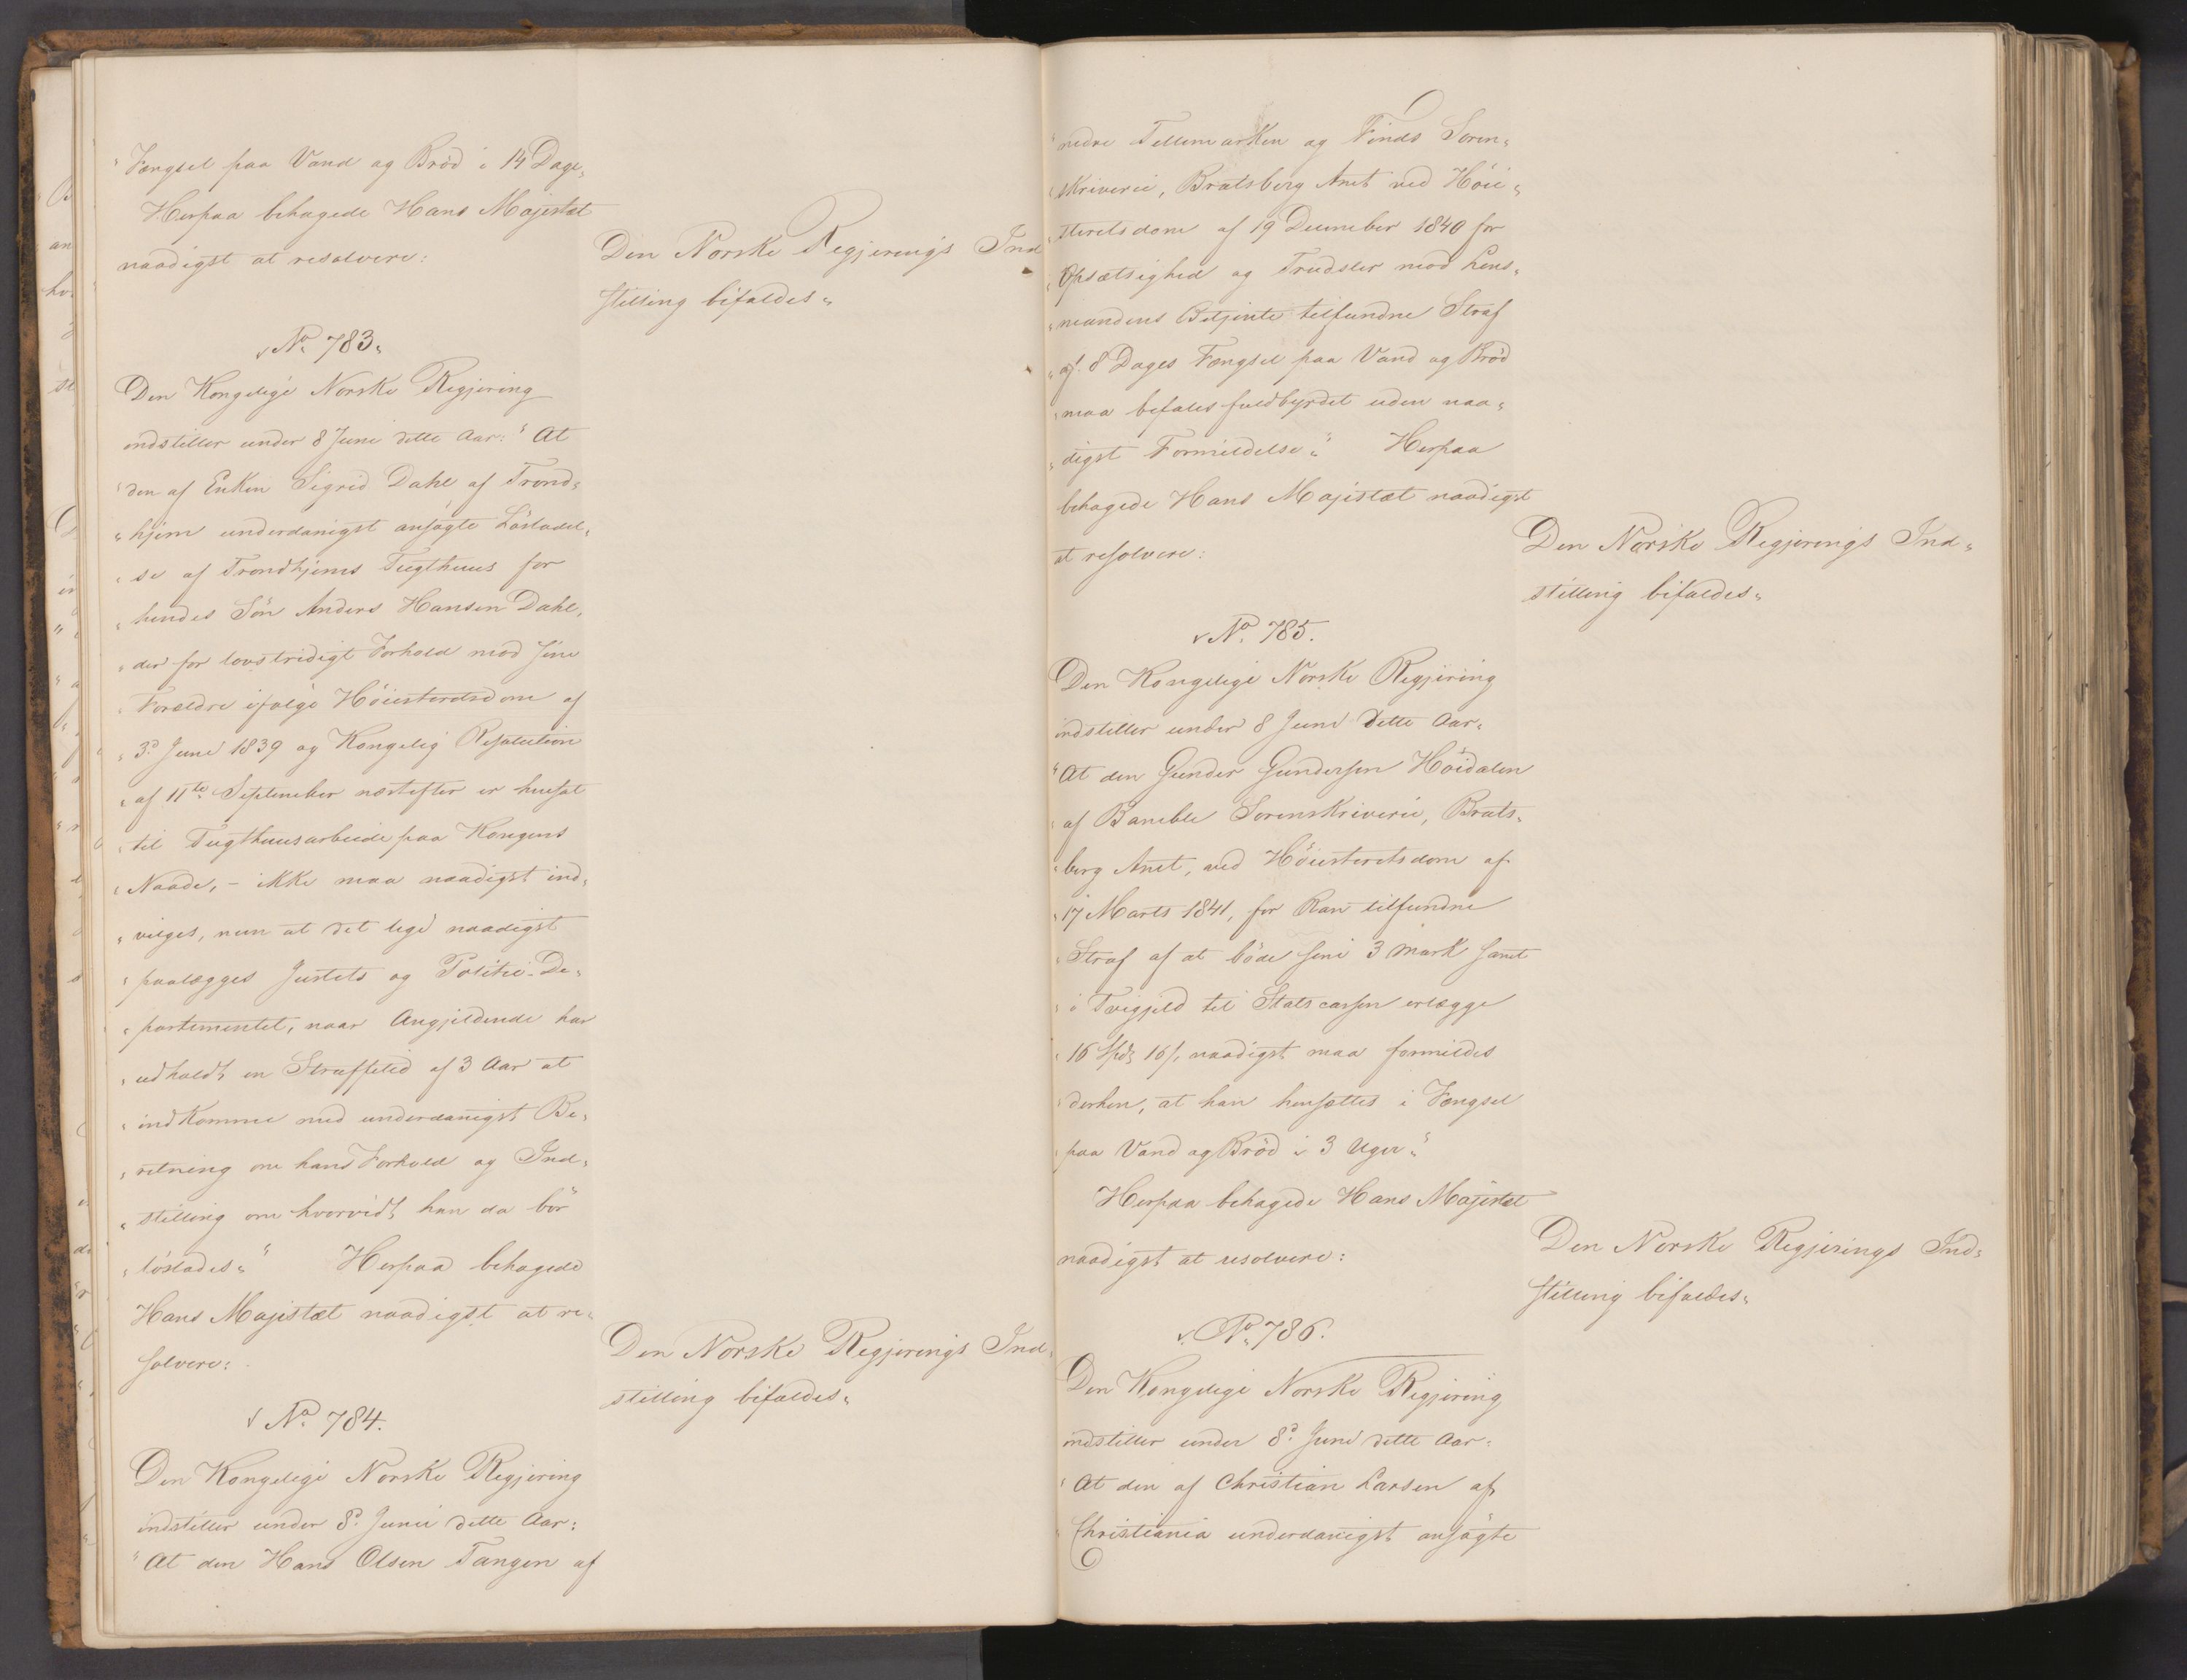 "Fængsel paa Vand og Brød i 14 Dage„
Herpaa behagede Hans Majestæt
naadigst at resolvere:
Den Norske Regjerings Ind
stilling bifaldes„
No 783„
Den Kongelige Norske Regjering
indstiller under 8 Juni dette Aar: "At
"den af Enken Sigrid Dahl af Trond„
"hjem underdanigst ansøgte Løsladel„
"se af Trondhjems Tugthuus for
"hendes Søn Anders Hansen Dahl,
"der for lovstridigt Forhold mod sine
"Forældre ifølge Høiesteretsdom af
"3d Juni 1839 og Kongelig Resolution
"af 11te September næstefter er hensat
"til Tugthuusarbeide paa Kongens
"Naade, - ikke maa naadigst ind„
"vilges, men at det lige naadigst
"paalægges Justits og Politie-De„
"partementet, naar Angjeldende har
"udholdt en Straffetid af 3 Aar at
"indkomme med underdanigst Be„
"retning om hans Forhold og Ind„
"stilling om hvorvidt han da bør
"løslades„" Herpaa behagede
Hans Majestæt naadigst at re„
solvere:
Den Norske Regjerings Ind„
stilling bifaldes„
No 784.
Den Kongelige Norske Regjering
indstiller under 8d Juni dette Aar:
"At den Hans Olsen Tangen af
"nedre Tellemarken og Finds Soren„
"skriverie, Bratsberg Amt ved Høie„
"steretsdom af 19 December 1840 for
"Opsætsighed og Trudsler mod Lens„
"mandens Betjente tilfundne Straf
"af 8 Dages Fængsel paa Vand og Brød
"maa befales fuldbyrdet uden naa„
"digst Formildelse„" Herpaa
behagede Hans Majestæt naadigst
at resolvere:
Den Norske Regjerings Ind„
stilling bifaldes„
No 785.
Den Kongelige Norske Regjering
indstiller under 8 Juni dette Aar„
"At den Gunder Gundersen Høidalen
"af Bamble Sorenskriverie, Brats„
"berg Amt, ved Høiesteretsdom af
"17 Marts 1841, for Ran tilfundne
"Straf af at bøde sine 3 Mark samt
"i Tvigjeld til Statscassen erlægge
"16 Spd 16 s, naadigst maa formildes
"derhen, at han hensættes i Fængsel
"paa Vand og Brød i 3 Uger„"
Herpaa behagede Hans Majestæt
naadigst at resolvere:
Den Norske Regjerings Ind„
stilling bifaldes„
No 786.
Den Kongelige Norske Regjering
indstiller under 8d Juni dette Aar„
"At den af Christian Larsen af
"Christiania underdanigst ansøgte